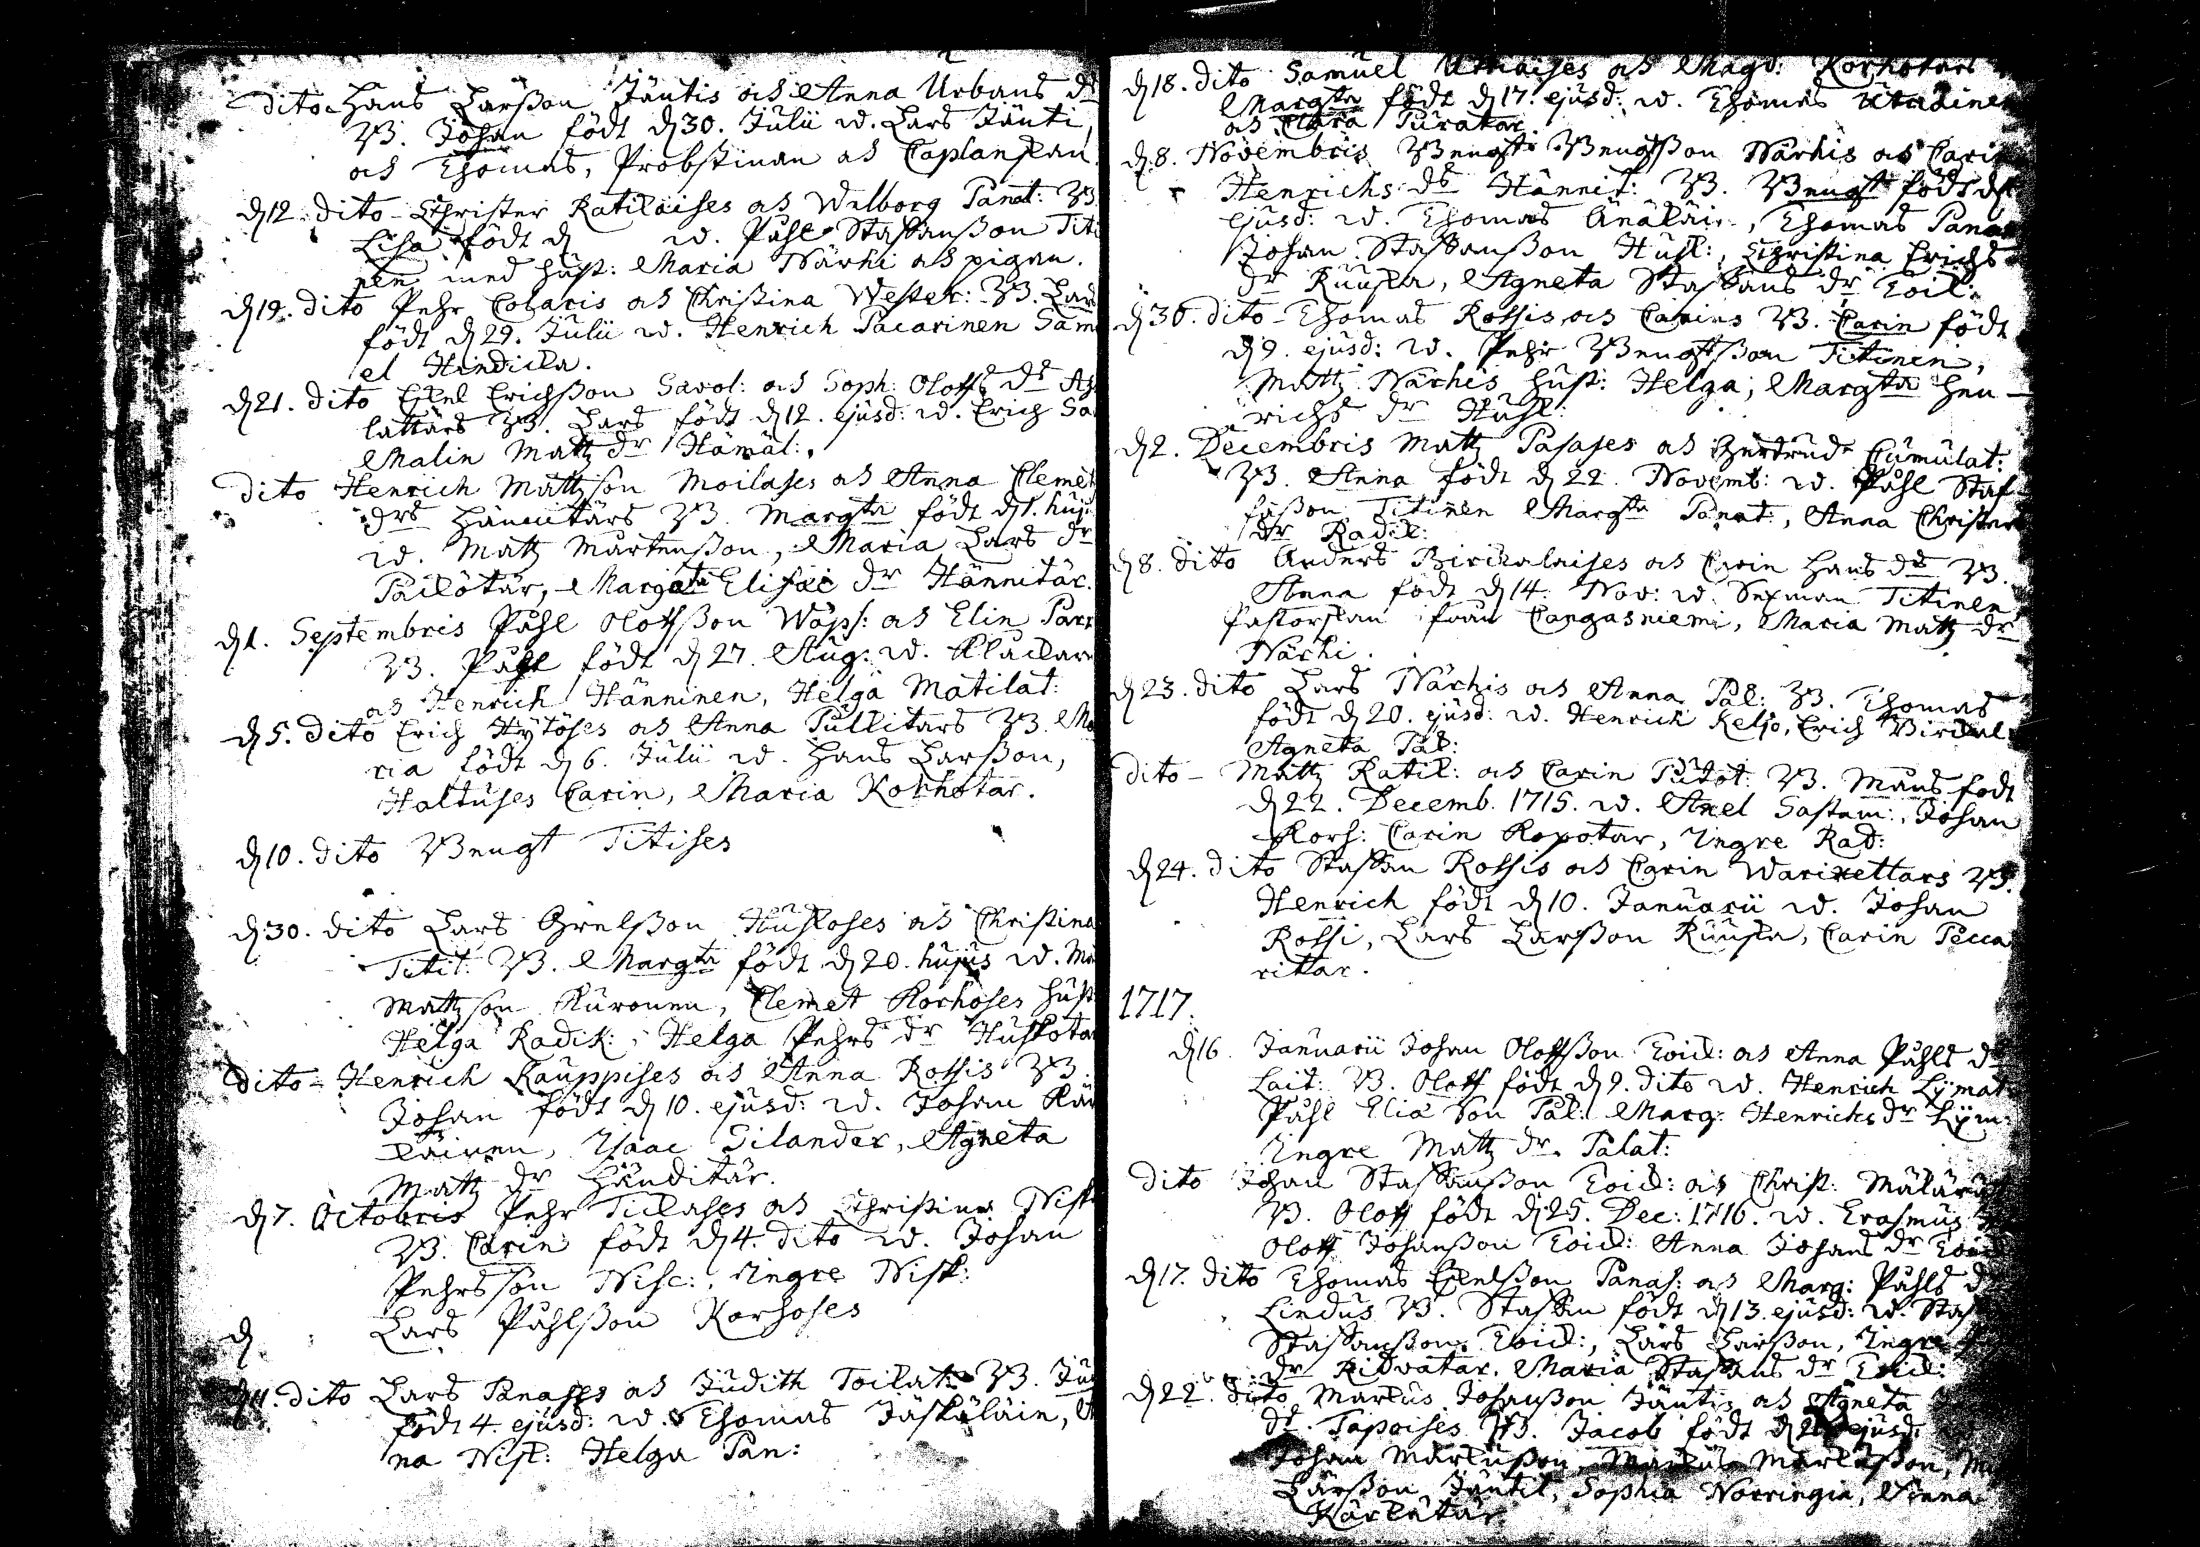 dito Hans Larsson Jäntis och Anna Urbans dr
B. Johan födt d 30. Julii w. Lars Jänti,
och Thomas, Probstinnan och Caplanskan.
d 12. dito Christer Ratilaises och Walborg Panat: B.
Lisa födt d w. Påhl Staffansson Titi
nen med hust: Maria Närhi och pigan.
d 19. dito Pehr Colaris och Christina Wester: B. Lars
födt d 29. Julii w. Henrich Pacarinen Samu
el Hindicka.
d 21. dito Erichsson Savol: och Soph: Oloffs dr
lattars B. Lars födt d 12. ejusd: w. Erich
Malin Matz dr Hämäl:
dito Henrich Matzson Moilases och Anna Clemet
drs Hännitärs B. Margta födt d 1. huj:
w. Matz Mårtensson, Maria Lars dr
Pailotar, Margeta dr Hännitär.
d 1. Septembris Påhl Oloffsson Wäps: och Elin
B. Påhl födt d 27. Aug: w. Klåckare
och Henrich Hänninen, Helga Matilat:
d 5. dito Erich Hytöses och Anna Pullitars B. Ma
ria födt d 6. Julii w. Hans Larsson,
Haltuses Carin, Maria Korhotar.
d 10. dito Bengt Titises
d 30. dito Lars Grelsson Huskoses och Christina
Titit: B. Margta födt d 20. hujus w.
Matzson Kuronen, Clemet Korhoses hust:
Helga Radik: Helga Pehrs dr Huskotar
dito Henrich Kauppises och Anna Rossis B.
Johan födt d 10. ejusd: w. Johan
läinen, Isaac Gilander, Agneta
Matz dr Händitär.
d 7. Octobris Pehr Tiilases och Christina Nisk
B. Carin födt d 4. dito w. Johan
Pehrsson Nisc:, Ingre Nisk:
d Lars Påhlsson Korhoses
d 11. dito Lars Panases och Judith Toilat: B.
födt 4. ejusd: w. Thomas Jäskeläin,
na Nisk: Helga Pan:
d 18. dito Samuel och Magd: Korhotars
Margta födt d 17. ejusd: w. Thomas
och Clara Puratar.
d 8. Novembris Bengt Bengtsson Närhis och Carin
Henrichs dr Hännit: B. Bengt födt
ejusd: w. Thomas, Thomas Panas
Johan Staffansson Husk:, Christina Erichs
dr Ruuska, Agneta Staffans dr Toik.
d 30. dito Thomas Rossis och Carins B. Carin födt
d 9. ejusd: w. Pehr Bengtsson Titinen,
Matz Närhis hust: Helga, Margta Hen
richs dr Husk:
d 2. Decembris Matz Pasases och Gertrud Cumulat:
B. Anna födt d 22. Novemb: w. Påhl Staf
fasson Titinen Margta Panat:, Anna Christers
dr Radik:
d 8. dito Anders Birckalaises och Carin Hans drs B.
Anna födt d 14. Nov: w. Sexman Titinen
Pastorskan från Cangasniemi, Maria Matz dr
Närhi.
d 23. dito Lars Närhis och Anna Pal: B. Thomas
födt d 20. ejusd: w. Henrich Keljo, Erich
Agneta Pal:
dito Matz Ratik: och Carin Putot: B. Måns födt
d 22. Decemb. 1715. w. Axel Sastam:, Johan
Korh: Carin Ropotar, Ingre Rad:
d 24. dito Staffan Rossis och Carin Warikettars B.
Henrich födt d 10. Januarii w. Johan
Rossi, Lars Larsson Ruuska, Carin Pecca
rittar.
1717.
d 16. Januarii Johan Oloffsson Toick: och Anna Påhls dr
Lait: B. Oloff födt d 9. dito w. Henrich Lymat
Påhl Elia son Pal: Marg: Henrichs dr Lym:
Ingre Matz dr. Palat:
dito Johan Staffansson Toick: och Christ:
B. Oloff födt d 25. Dec: 1716. w. Erasmus
Oloff Johansson Toick: Anna Johans dr Toick
d 17. dito Thomas Panas: och Marg: Påhls dr
Lindus B. Staffan födt d 13. ejusd: w. Staf
Staffansson Toick:, Lars Larsson, Ingre
dr Kidvatar. Maria Staffans dr Toick:
d 22. dito Markus Johansson Jäntis och Agneta
dr. Tapoises B. Jacob födt ejusd:
Johan Markusson, Markus Markusson,
Larsson Jäntik, Sophia Norringia, Anna